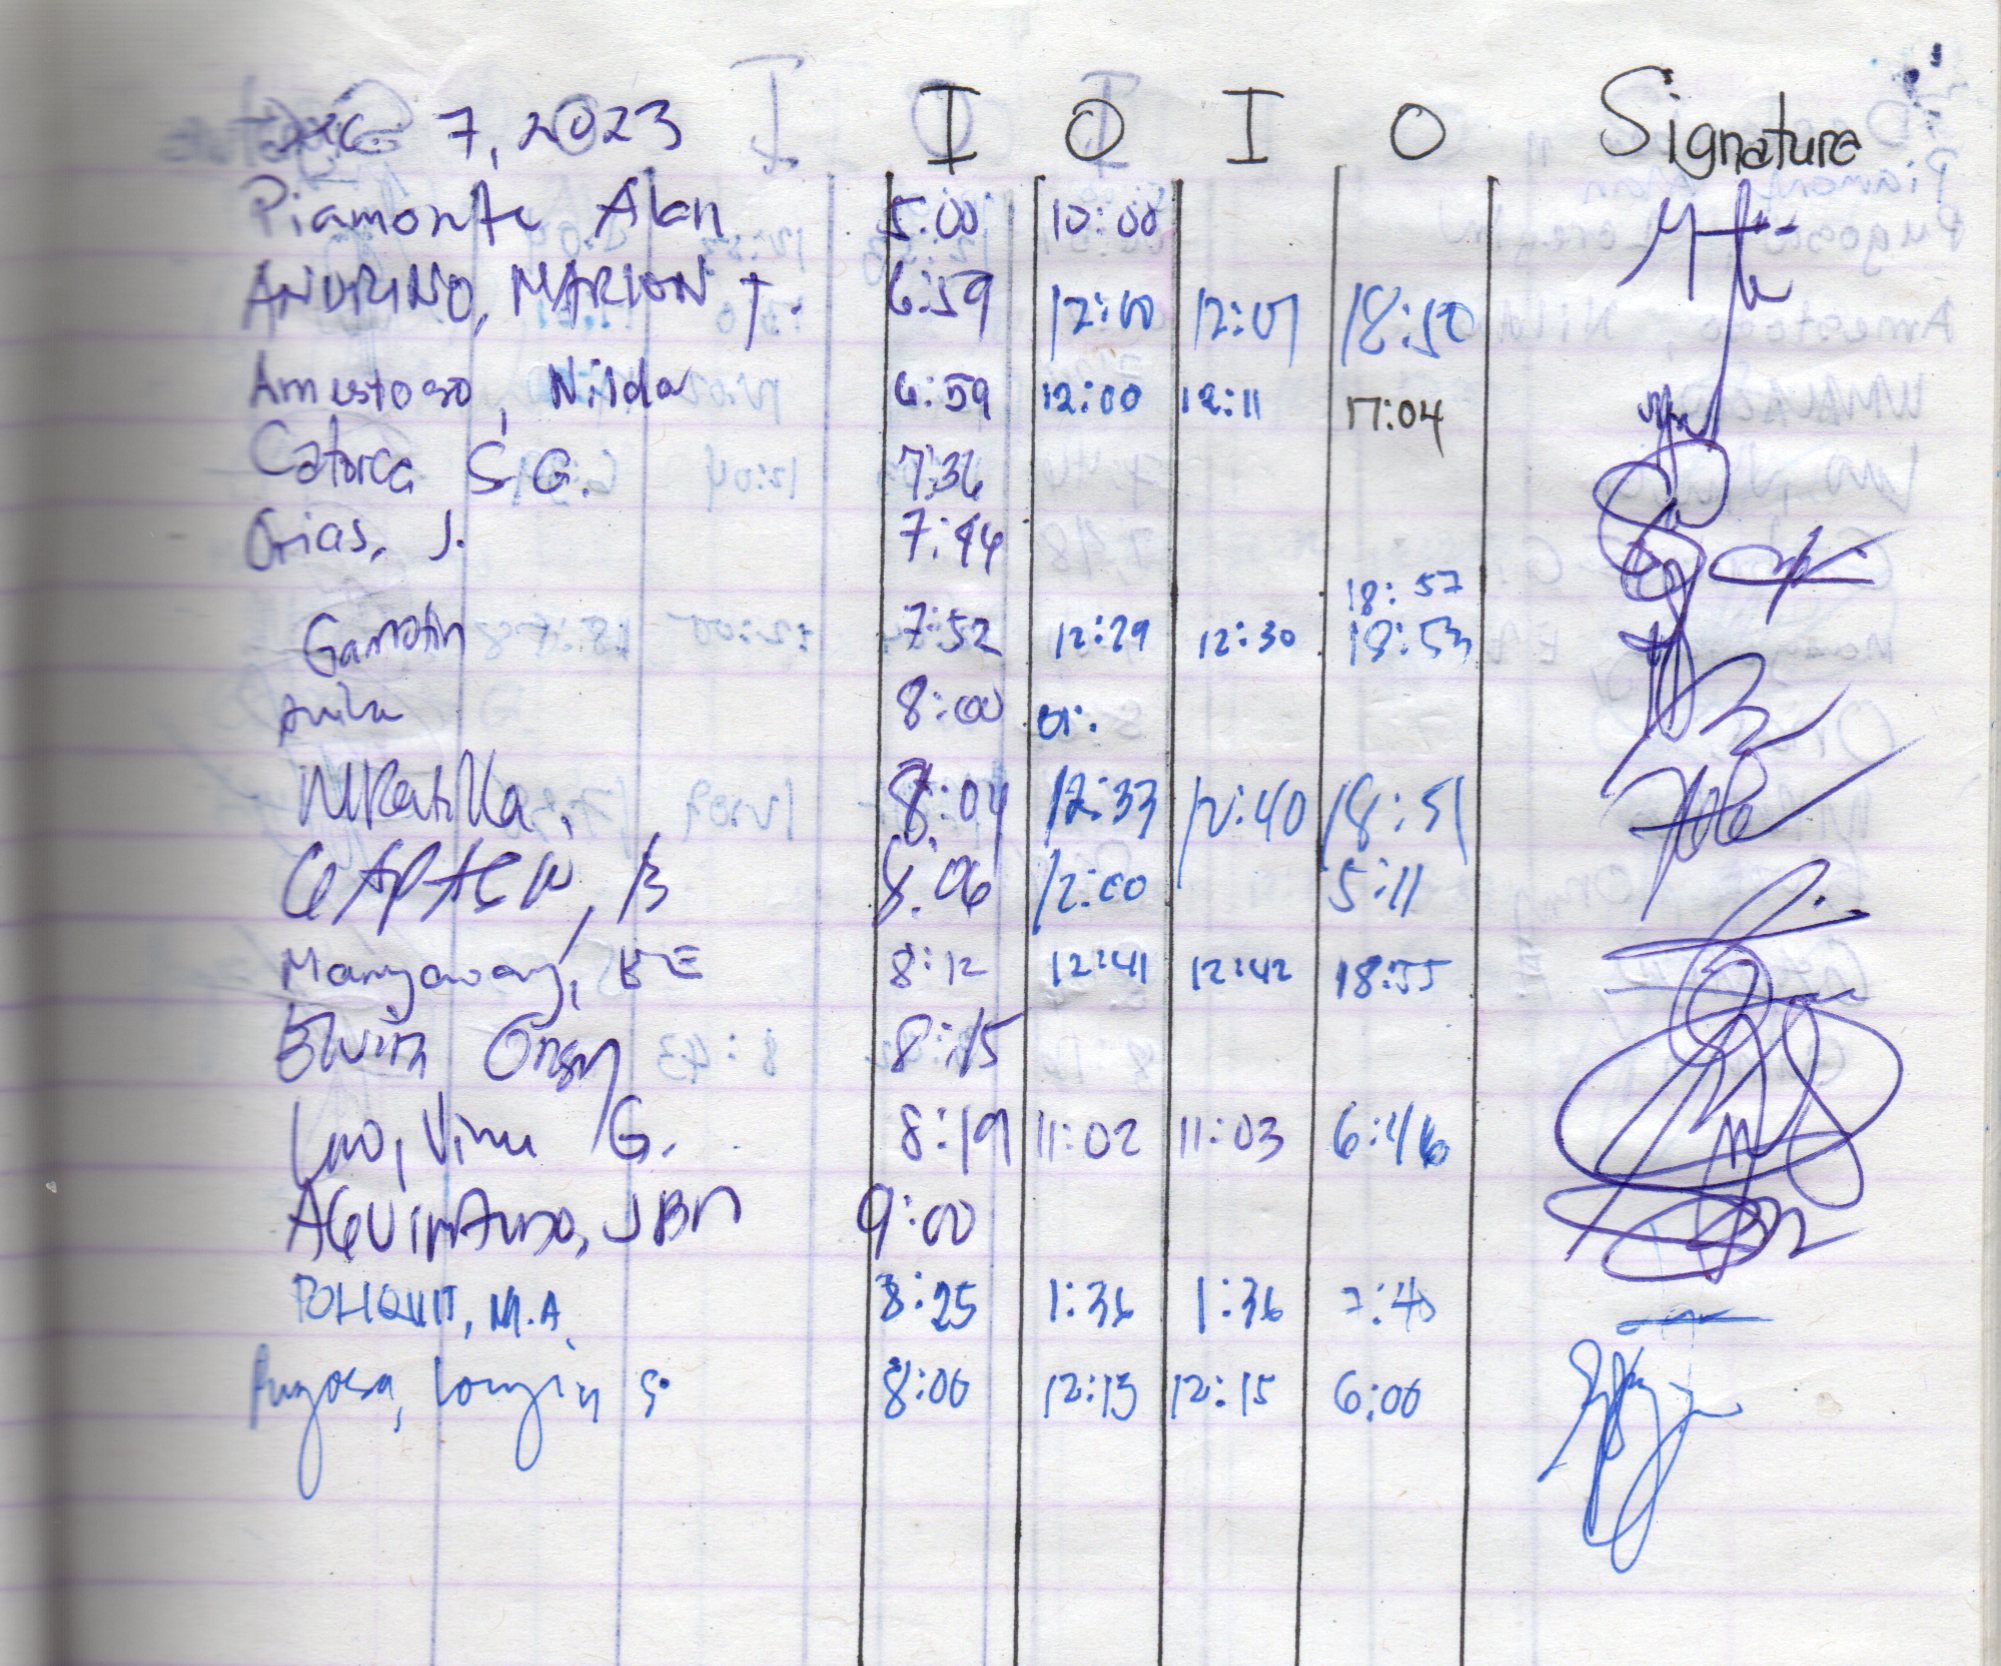 Dec 7, 2023 I O I O Signature
Piamonte Alan 5:00 10:00
ANDRINO, MARLON T. 6:59 12:00 12:01 18:50
Amestoso, Nilda 6:59 12:00 12:11 17:04
Catorce S.G. 7:36
Orias, J. 7:44
18:57
Gamotin 7:52 12:29 12:30 18:53
Avila 8:00 01:
8:04 12:33 12:40 18:51
B 8:06 12:00 5:11
Mangaway, BE 8:12 12:41 12:42 18:55
Elvira Ongy 8:15
Lao, Vinu G. 8:19 11:02 11:03 6:46
AGUINALDO, JBM 9:00
POLIQUIT, M.A. 8:25 1:36 1:36 7:45
Pugosa, Longin S. 8:00 12:13 12:15 6:00